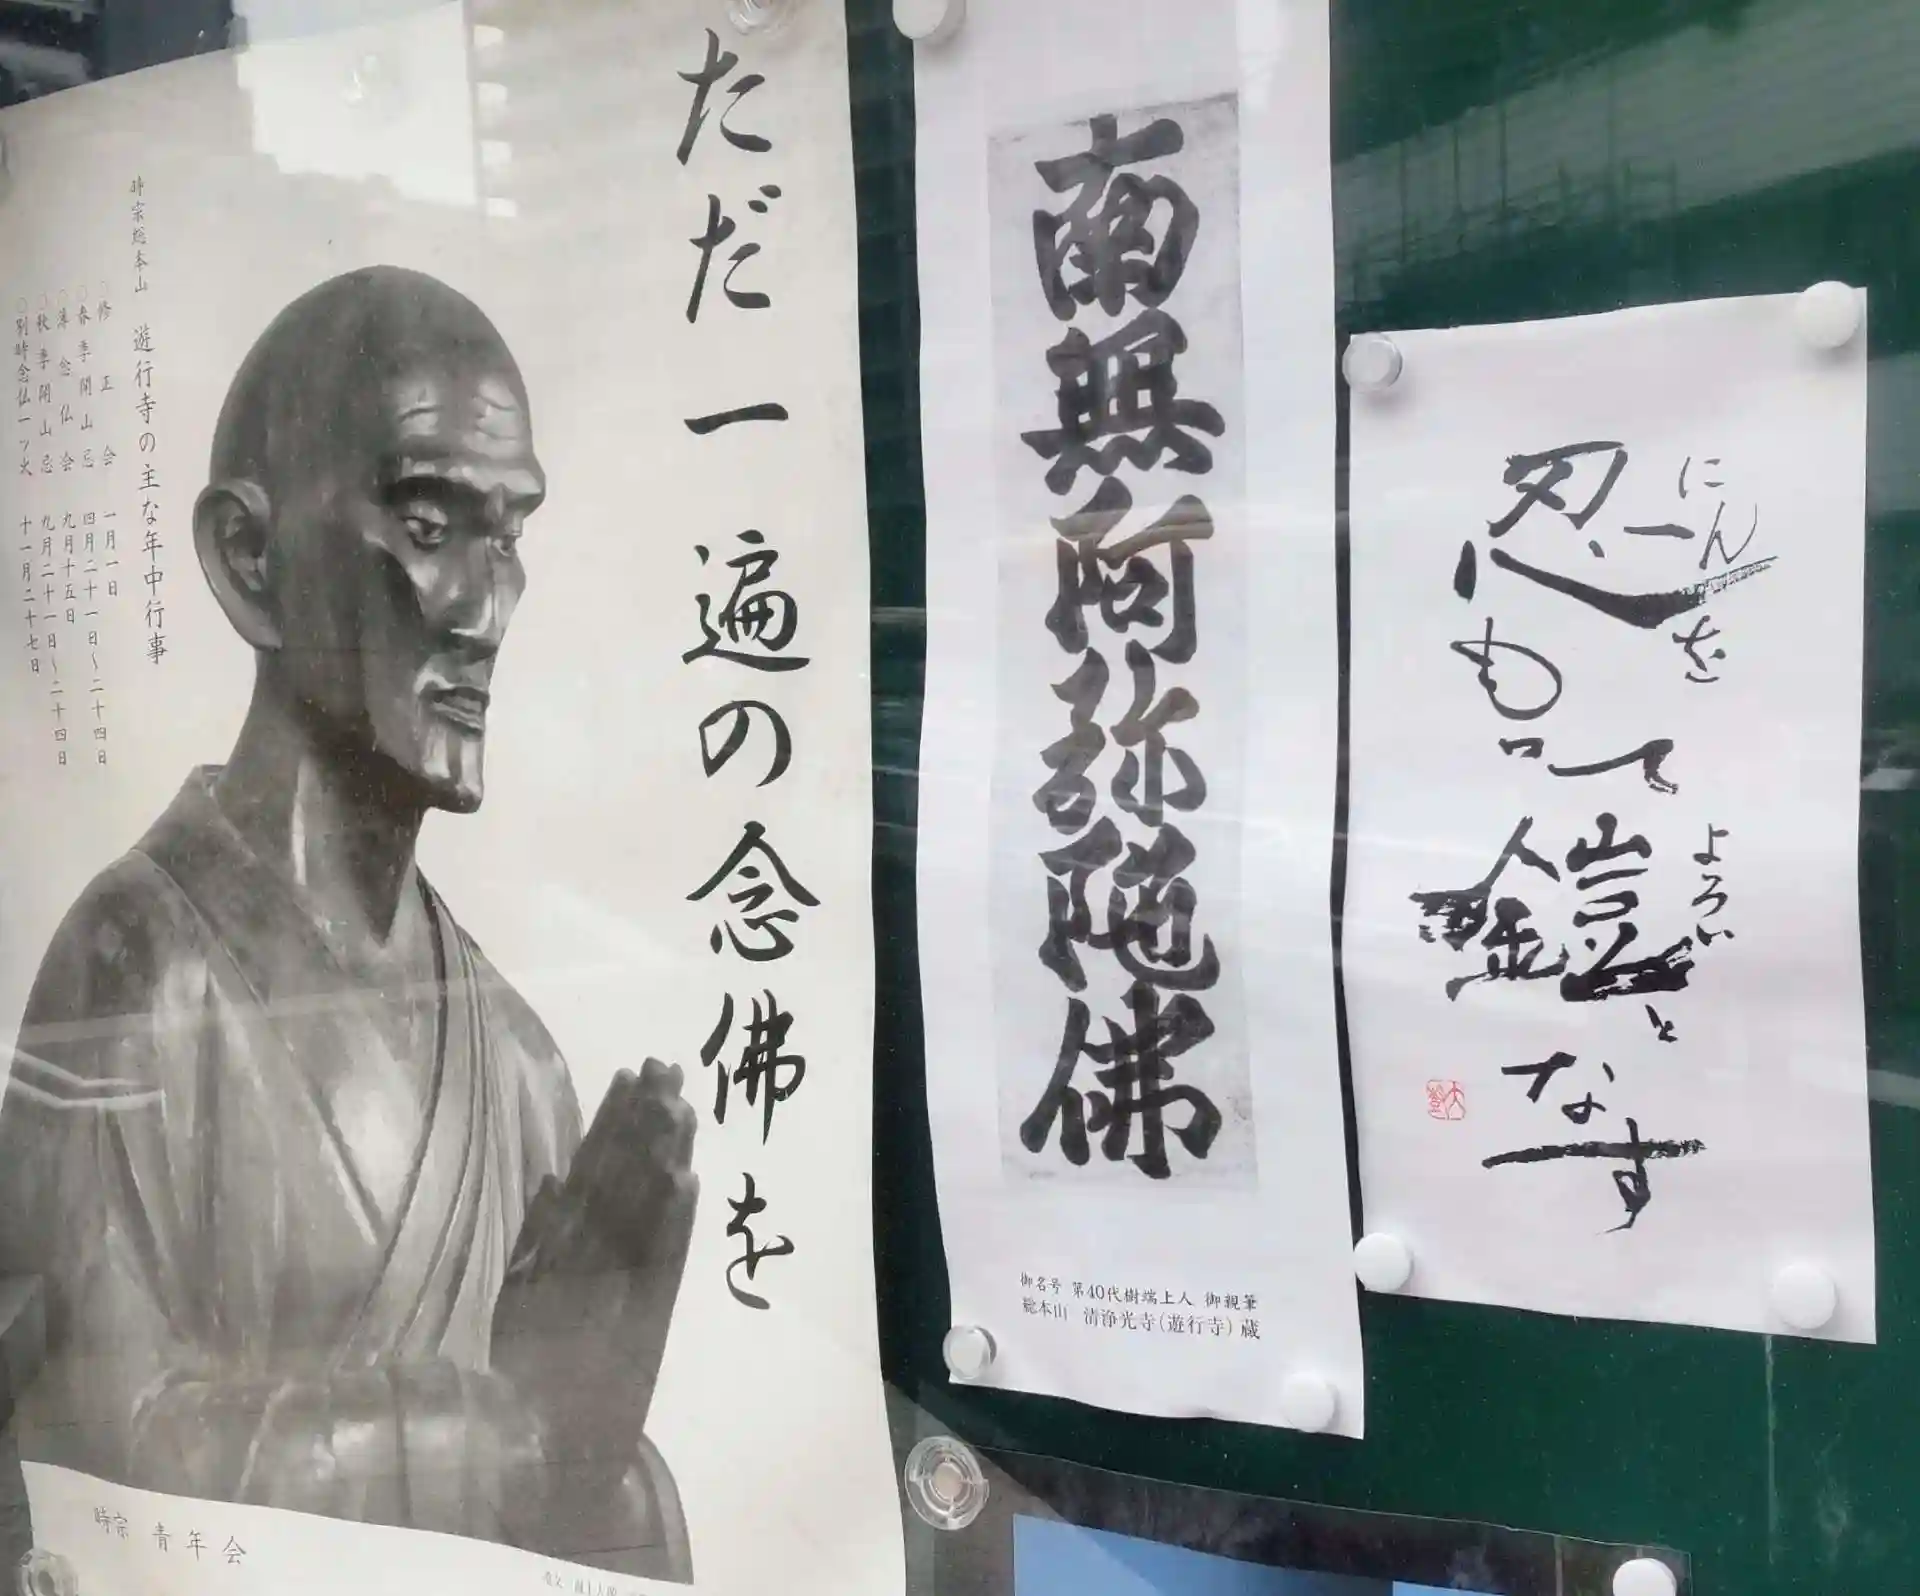 ただ一遍の念佛を
時宗総本山 遊行寺の主な年中行事
○修正会 一月一日
○春季開山忌 四月二十一日～二十四日
○薄念仏会 九月十五日
○秋季開山忌 九月二十一日～二十四日
○別時念仏一ツ火 十一月二十七日
時宗 青年会
南無阿弥陀佛
御名号 第40代樹端上人 御親筆
総本山 清浄光寺(遊行寺)蔵
にん
忍を
もって
よろい
鎧と
なす